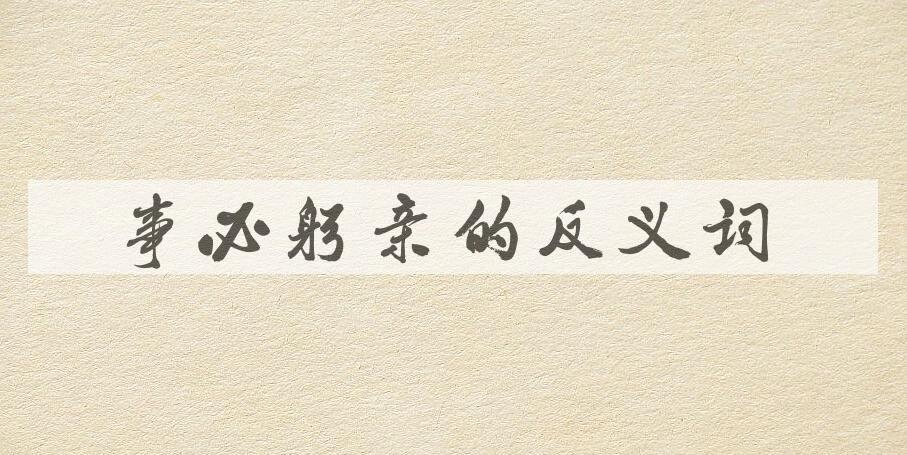 事必躬亲的反义词